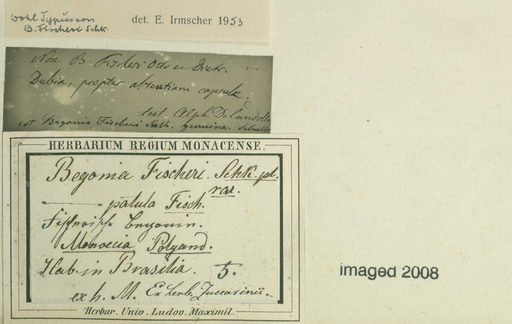 wohl Typus von
B. Fischeri Schk.
det. E. Irmscher 1953
Non B. Fischeri Otto et Dietr.
Dubia, propter absentiam capsulae.
test. Alph. DeCandolle
est Begonia Fischeri Schk. genuina.
HERBARIUM REGIUM MONACENSE.
Begonia Fischeri. Schk. pl. rar.
patula Fisch.
Monoecia Polyand.
Hab. in Brasilia. 5.
ex h. M. Ex herb. Zuccarinii.
Herbar. Univ. Ludov. Maximil.
imaged 2008